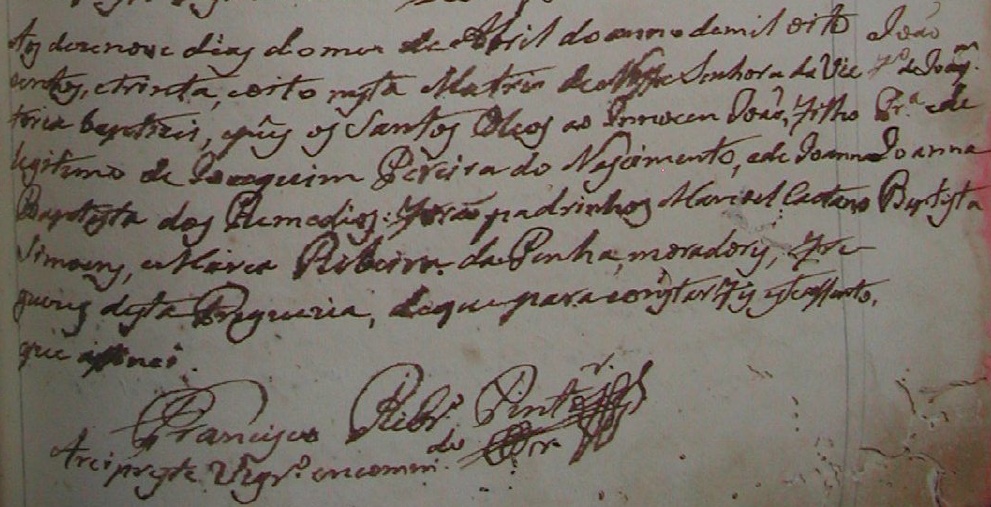 Aos desenove dias do mez de Abril do anno de mil oito
centos, e trinta, e oito nesta Matriz de Nossa Senhora da Vic
toria baptizei, e puz os Santos Oleos ao Innocen João, Filho
legitimo de Joaquim Pereira do Nascimento, e de Joanna
Baptista dos Remedios: Forão padrinhos Manoel Caetano
Simoens, e Maria Ribeira da Penha, moradores, Fre
guezes desta Freguezia, de que para constar Fiz este assento,
que assinei.
Francisco Ribrº Pinto
Arcipreste Vigrº encomendo
João
Fº de Joaqm.
Prª e de
Joanna
Baptista